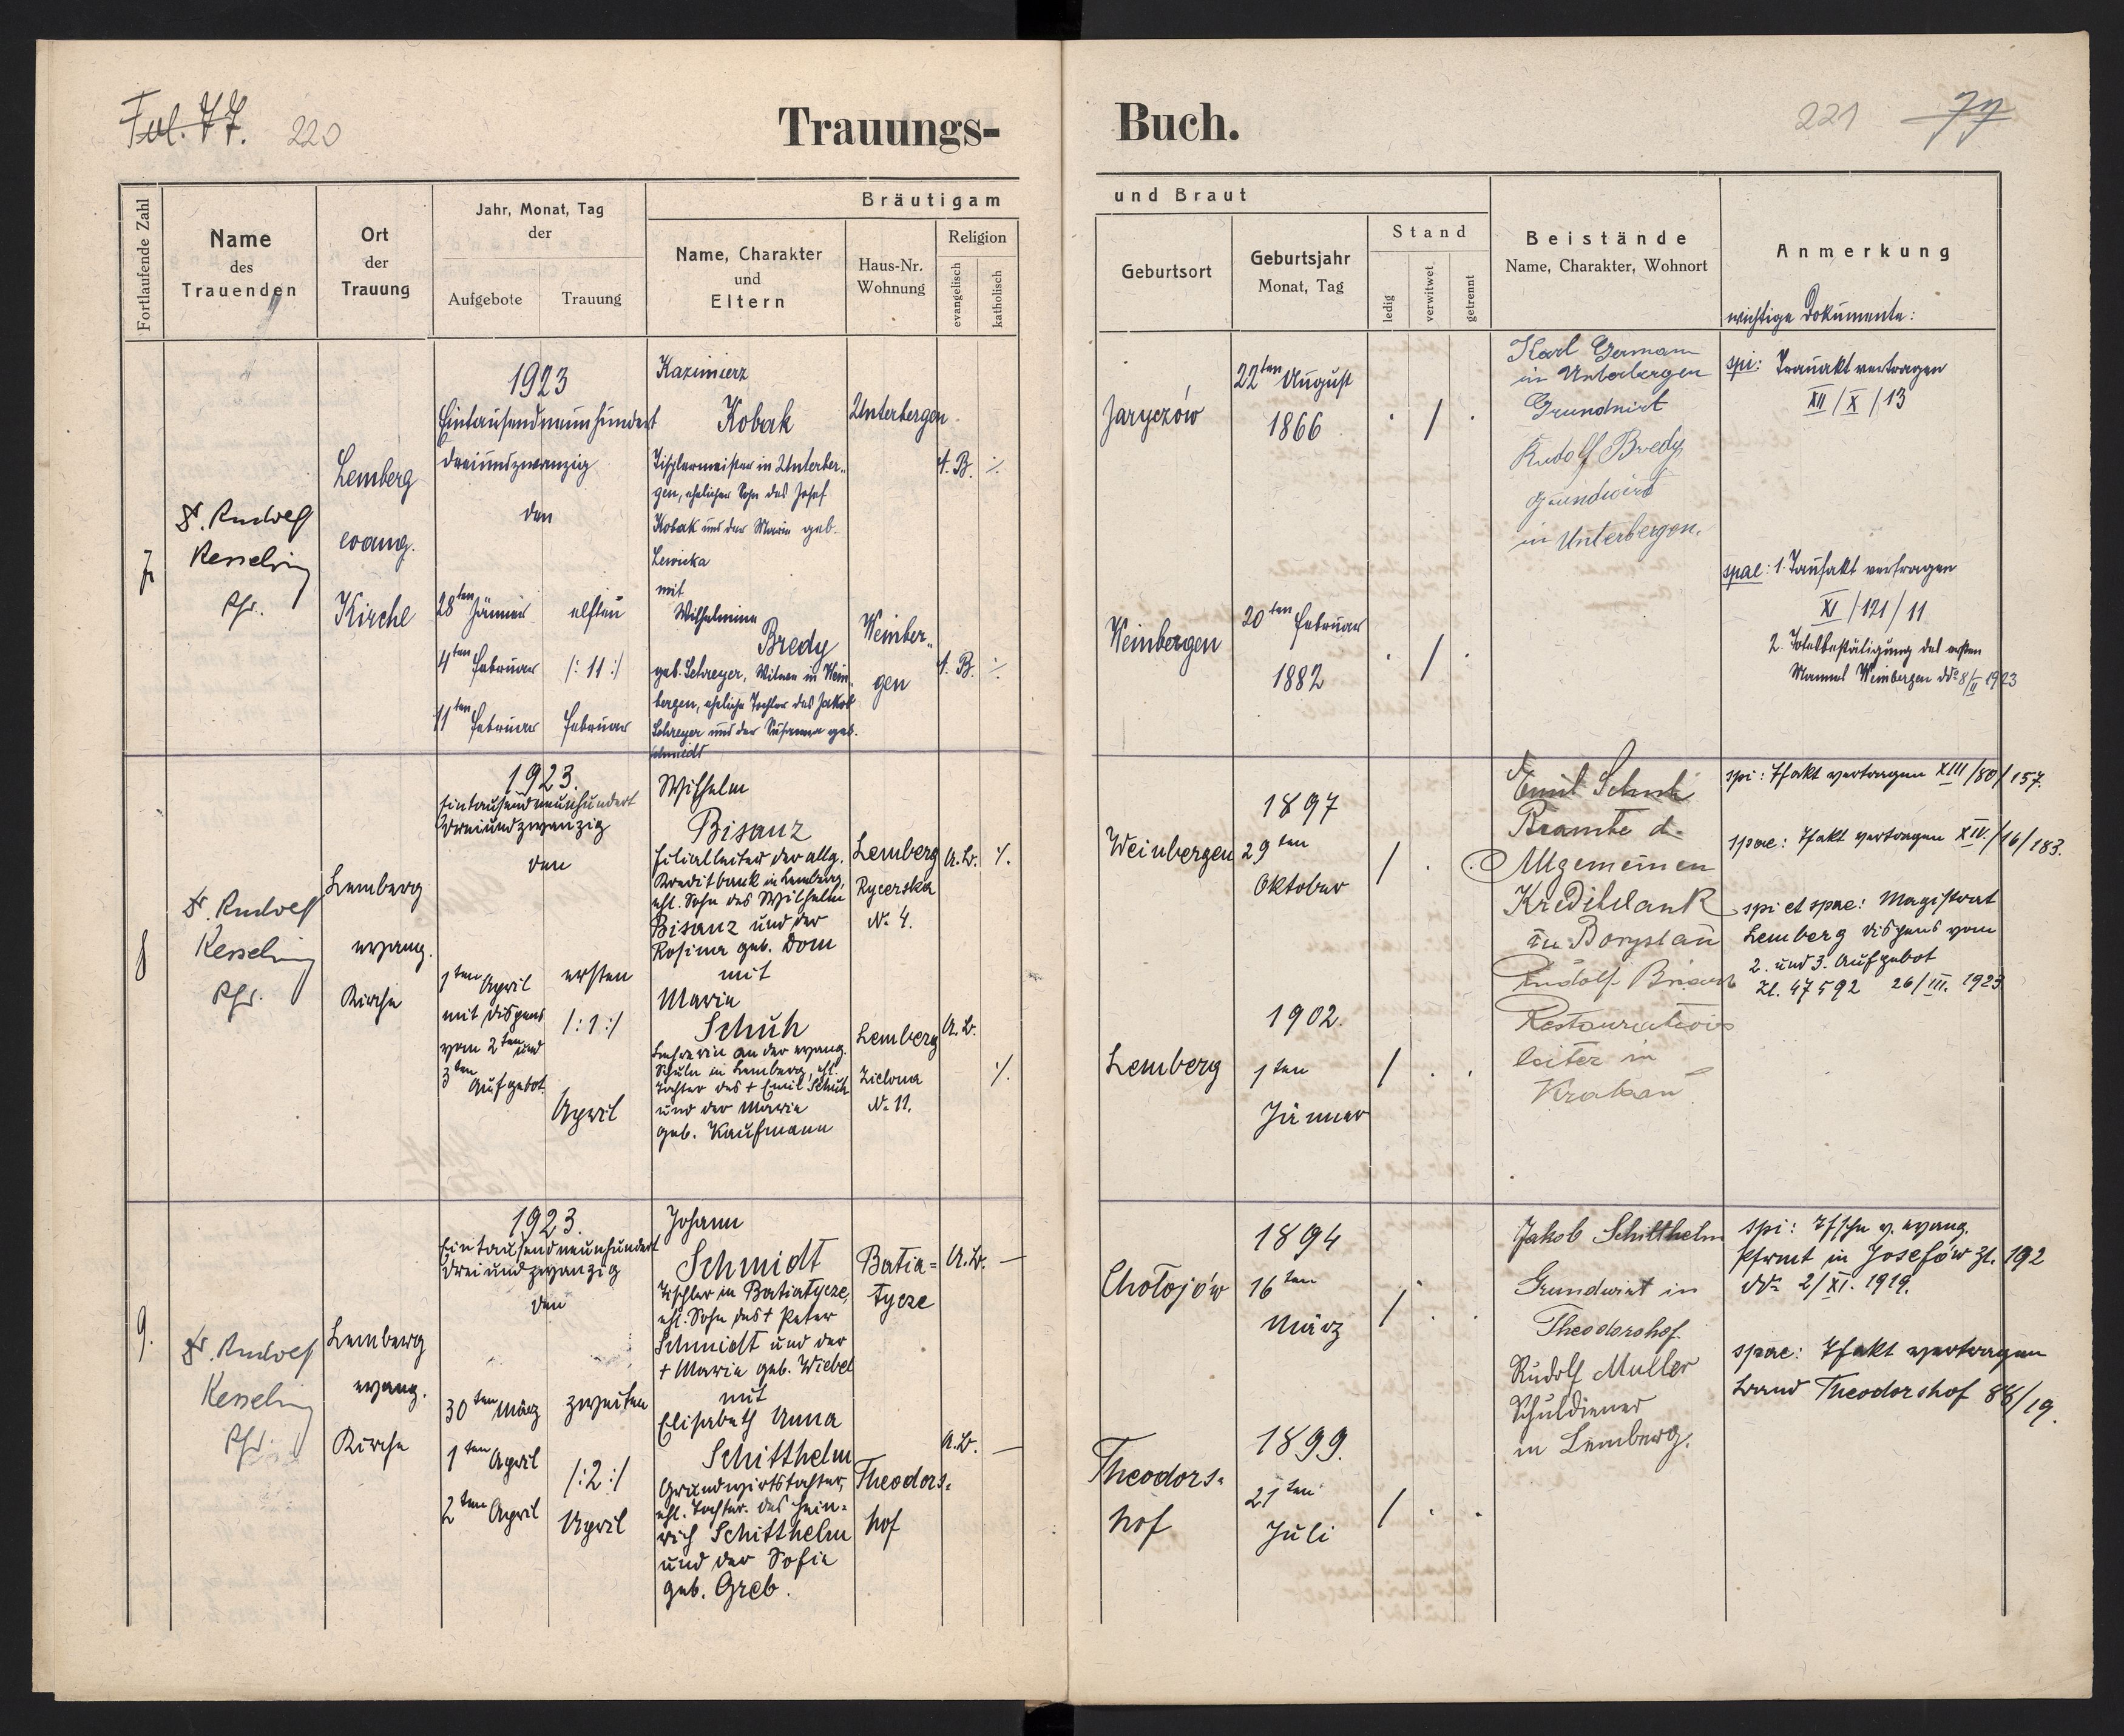 Fol. 77. 220
Trauungs-
Buch.
221 77
Fortlaufende Zahl
Name
des
Trauenden
Ort
der
Trauung
Jahr, Monat, Tag
der
Aufgebote
Trauung
Bräutigam
Name, Charakter
und
Eltern
Haus-Nr.
Wohnung
Religion
evangelisch
katholisch
und Braut
Geburtsort
Geburtsjahr
Monat, Tag
Stand
ledig
verwitwet
getrennt
Beistände
Name, Charakter, Wohnort
Anmerkung
wichtige Dokumente:
7
D. Rudolf
Kesselring
Pfr.
Lemberg
evang.
Kirche
1923
Eintausendneunhundert
dreiundzwanzig
den
28ten Jänner
4ten Februar
11ten Februar
elften
/: 11 :/
Februar
Kazimierz
Kobak
Tischlermeister in Unterber-
gen, ehelicher Sohn des Josef
Kobak und der Maria geb.
Lewicka
mit
Wilhelmine
Bredy
geb. Schreyer, Witwe in Wein-
bergen, eheliche Tochter des Jakob
Schreyer und der Susanna geb.
Schmidt
Unterbergen
Weinber-
gen
A. B. ./.
A. B. ./.
Jaryczów
22ten August
1866
. / .
Weinbergen
20ten Februar
1882
. / .
Karl German
in Unterbergen
Grundwirt
Rudolf Bredy
Grundwirt
in Unterbergen.
spi: Trauakt vertragen
XII / X / 13
spae: 1. Taufakt vertragen
XI / 121 / 11
2. Totalbestätigung des ersten
Mannes Weinbergen ddo 8/II 1923
8
D. Rudolf
Kesselring
Pfr.
Lemberg
evang.
Kirche
1923.
Eintausendneunhundert
dreiundzwanzig
den
1ten April
mit Dispens
vom 2ten und
3ten
Aufgebot
ersten
/: 1 :/
April
Wilhelm
Bisanz
Filialleiter der allg.
Kreditbank in Lemberg,
ehl. Sohn des Wilhelm
Bisanz und der
Rosina geb. Dom
mit
Maria
Schuh
Lehrerin an der evang.
Schule in Lemberg, ehl.
Tochter des + Emil Schuh
und der Maria
geb. Kaufmann
Lemberg
Rycerska
No 4.
Lemberg
Zielona
No 11.
A. B. ./.
A. B. ./.
Weinbergen
1897
29ten
Oktober
/ . .
Lemberg
1902.
1ten
Jänner
/ . .
Emil Schuh
Beamte d.
Allgemeinen
Kreditbank
in Borysłau
Rudolf
Restaurations
leiter in
Krakau
spi: Tfakt vertragen XIII/80/157.
spae: Tfakt vertragen XIV./16/183.
spi et spae: Magistrat
Lemberg Dispens vom
2. und 3. Aufgebot
Zl. 47592 26/III. 1923
9.
D. Rudolf
Kesselring
Pfr.
Lemberg
evang.
Kirche
1923.
Eintausendneunhundert
dreiundzwanzig
den
30ten März
1ten April
2ten April
zweiten
/: 2 :/
April
Johann
Schmidt
Tischler in Batiatycze,
ehl. Sohn des + Peter
Schmidt und der
+ Maria geb. Wiebel
mit
Elisabeth Anna
Schitthelm
Grundwirtstochter,
ehl. Tochter des Hein=
rich Schitthelm
und der Sofie
geb. Greb.
Batia=
tycze
Theodors=
hof
A. B. —
A. B. —
Chołojów
1894
16ten
März
/ . .
Theodors=
hof
1899.
21ten
Juli
/ . .
Jakob Schitthelm
Grundwirt in
Theodorshof.
Rudolf Muller
Schuldiener
in Lemberg.
spi: Tfschn v. evang.
Pframt in Josefów Zl. 192
ddo 2/XI. 1919.
spae: Tfakt vertragen
Brand Theodorshof 88/19.